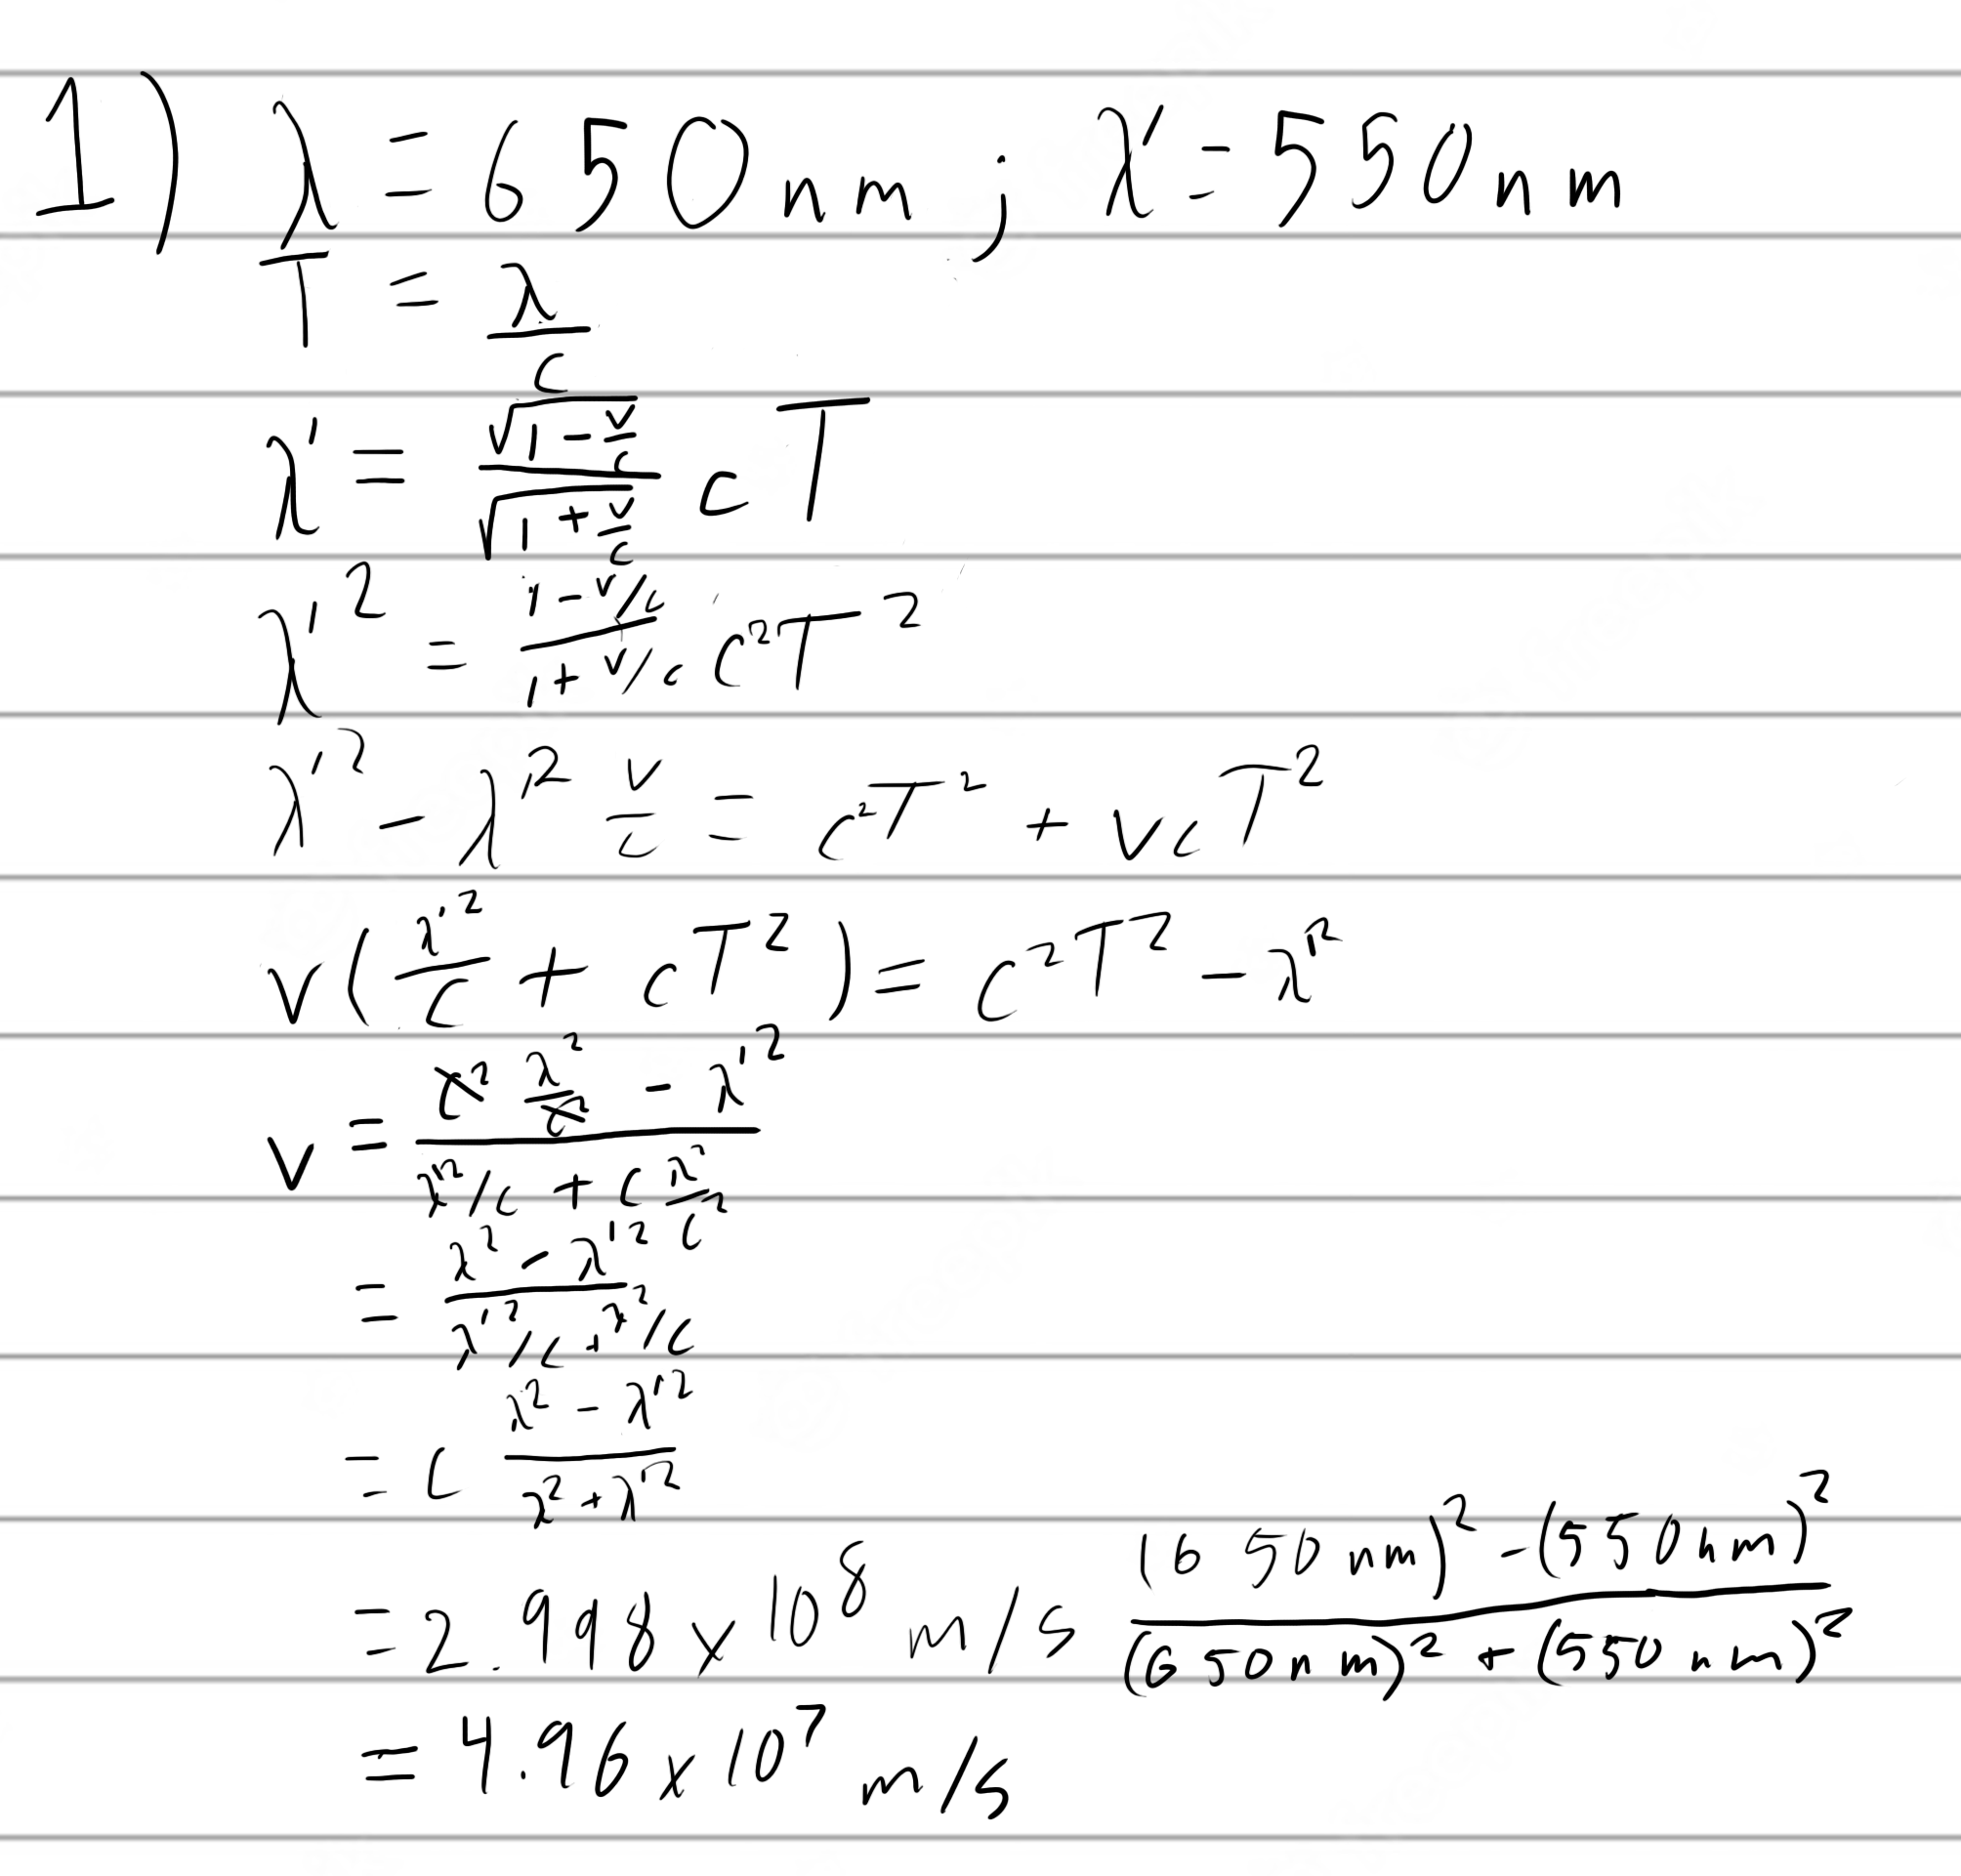 1) λ = 650nm ; λ' = 550nm
T = λ/c
λ' = √(1 - v/c) / √(1 + v/c) cT
λ'² = (1 - v/c)/(1 + v/c) c²T²
λ'² - λ'² v/c = c²T² + vcT²
v(λ'²/c + cT²) = c²T² - λ'²
v = (c² λ²/c² - λ'²) / (λ'²/c + c λ²/c²)
= (λ² - λ'²) / (λ'²/c + λ²/c)
= c (λ² - λ'²) / (λ² + λ'²)
= 2.998 x 10⁸ m/s ((650nm)² - (550nm)²) / ((650nm)² + (550nm)²)
= 4.96 x 10⁷ m/s